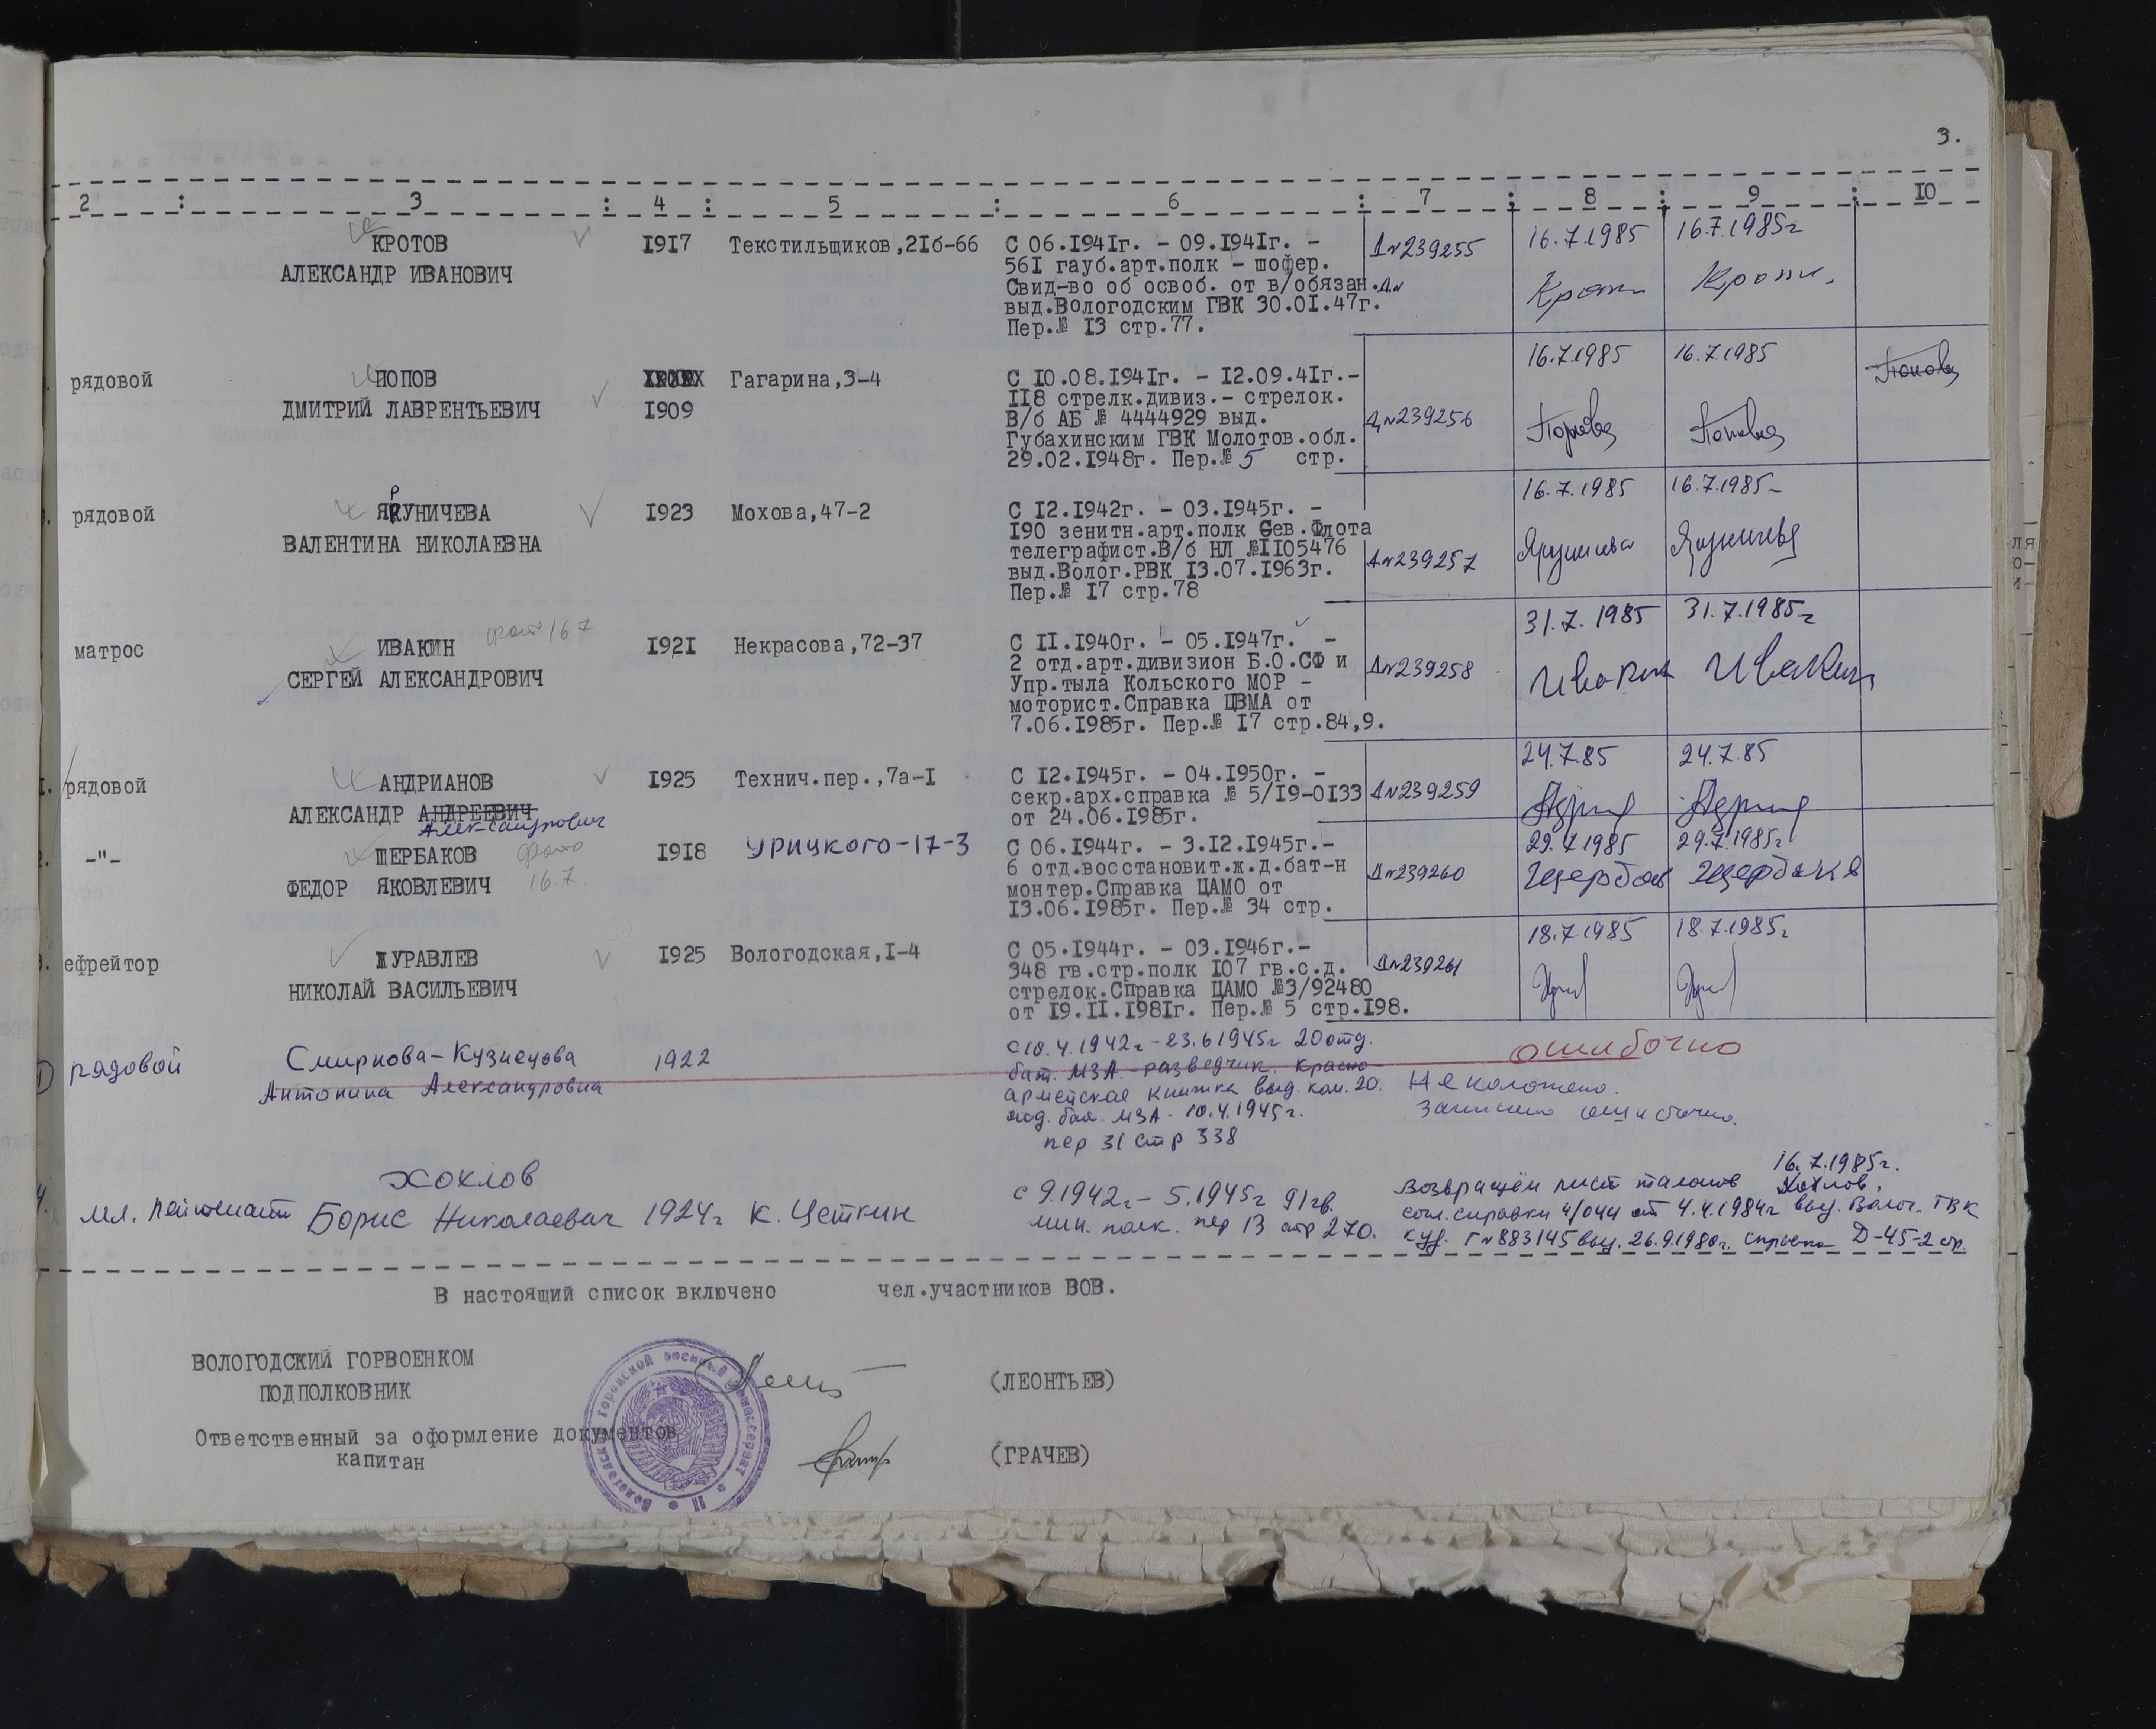 3.
2 : 3 : 4 : 5 : 6 : 7 : 8 : 9 : 10
КРОТОВ 1917 Текстильщиков,21б-66 С 06.1941г. - 09.1941г. - Д№239255 16.7.1985 16.7.1985г
АЛЕКСАНДР ИВАНОВИЧ 561 гауб.арт.полк - шофер.
Свид-во об освоб. от в/обязан. Д№
выд.Вологодским ГВК 30.01.47г.
Пер.№ 13 стр.77.
16.7.1985 16.7.1985
рядовой ПОПОВ Гагарина,3-4 С 10.08.1941г. - 12.09.41г.-
ДМИТРИЙ ЛАВРЕНТЬЕВИЧ 1909 118 стрелк.дивиз.- стрелок.
В/б АБ № 4444929 выд. Д№239256
Губахинским ГВК Молотов.обл.
29.02.1948г. Пер.№ 5 стр.
16.7.1985 16.7.1985
рядовой ЯРУНИЧЕВА 1923 Мохова,47-2 С 12.1942г. - 03.1945г. -
190 зенитн.арт.полк Сев.Флота
ВАЛЕНТИНА НИКОЛАЕВНА телеграфист.В/б НЛ №1105476 Д№239257
выд.Волог.РВК 13.07.1963г.
Пер.№ 17 стр.78
31.7.1985 31.7.1985г
матрос ИВАКИН фото 16.7 1921 Некрасова,72-37 С 11.1940г. - 05.1947г. -
2 отд.арт.дивизион Б.О.СФ и Д№239258 Ивакин Ивакин
СЕРГЕЙ АЛЕКСАНДРОВИЧ Упр.тыла Кольского МОР -
моторист.Справка ЦВМА от
7.06.1985г. Пер.№ 17 стр.84,9.
24.7.85 24.7.85
рядовой АНДРИАНОВ 1925 Технич.пер.,7а-1 С 12.1945г. - 04.1950г. -
секр.арх.справка № 5/19-0133 Д№239259
АЛЕКСАНДР АНДРЕЕВИЧ от 24.06.1985г.
Александрович
-"- ЩЕРБАКОВ фото 1918 Урицкого-17-3 С 06.1944г. - 3.12.1945г.- 29.7.1985 29.7.1985г
6 отд.восстановит.ж.д.бат-н Д№239260 Щербаков Щербаков
ФЕДОР ЯКОВЛЕВИЧ 16.7. монтер.Справка ЦАМО от
13.06.1985г. Пер.№ 34 стр.
18.7.1985 18.7.1985г
ефрейтор ЖУРАВЛЕВ 1925 Вологодская,1-4 С 05.1944г. - 03.1946г.- Д№239261
348 гв.стр.полк 107 гв.с.д.
НИКОЛАЙ ВАСИЛЬЕВИЧ стрелок.Справка ЦАМО №3/92480
от 19.11.1981г. Пер.№ 5 стр.198.
рядовой Смирнова-Кузнецова 1922 с 10.4.1942г-23.6.1945г 20 отд. ошибочно
Антонина Александровна бат. МЗА-разведчик. Красно-
армейская книжка выд. ком. 20. Не положено.
отд. бат. МЗА - 10.4.1945г. Записано ошибочно.
пер 31 стр 338
16.7.1985г.
Хохлов с 9.1942г-5.1945г 91 гв. Возвращён лист талонов Хохлов.
мл. лейтенант Борис Николаевич 1924г К. Цеткин мин. полк. пер 13 стр 270. согл.справки 4/044 от 4.4.1984г выд. Волог. ГВК
куд. Г№883145 выд. 26.9.1980г. справка Д-45-2 стр.
В настоящий список включено чел.участников ВОВ.
ВОЛОГОДСКИЙ ГОРВОЕНКОМ
ПОДПОЛКОВНИК (ЛЕОНТЬЕВ)
Ответственный за оформление документов
капитан (ГРАЧЕВ)
Вологодский городской военный комиссариат